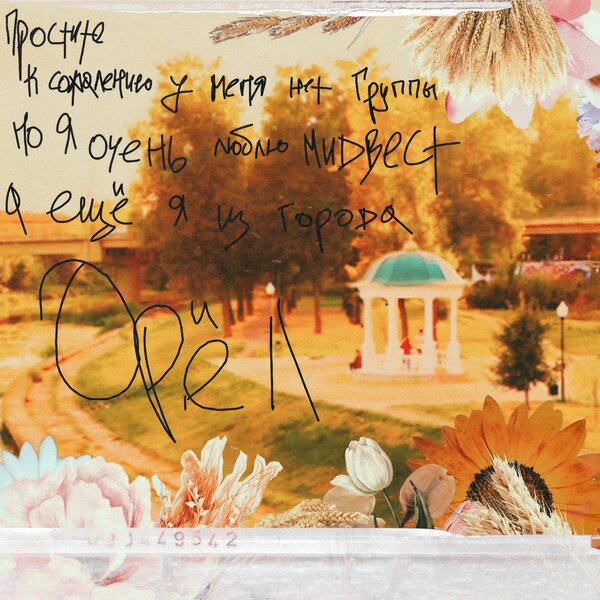 Простите
К сожалению у меня нет Группы
Но Я очень люблю Мидвест
А ещё я из города
Орёл